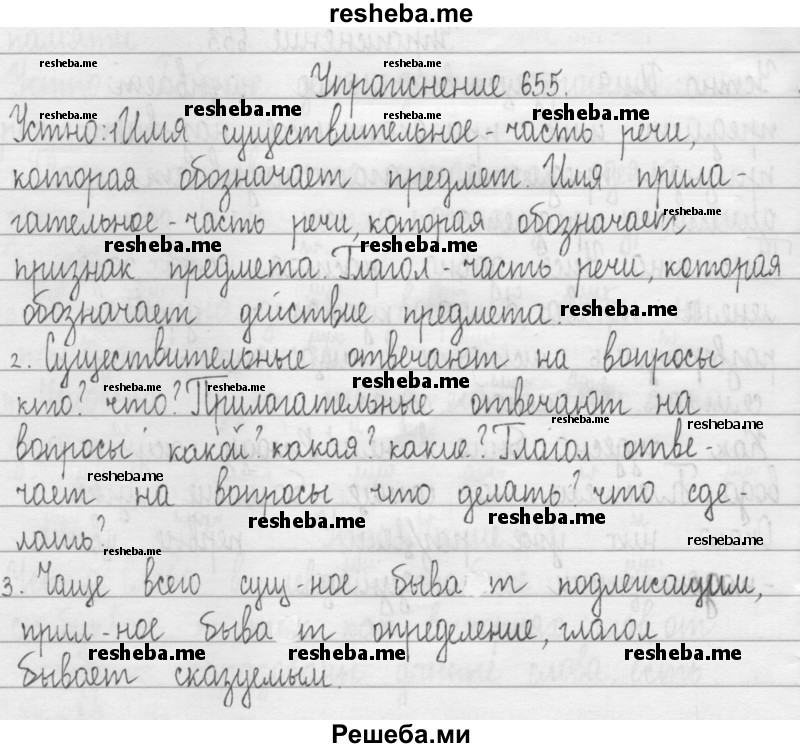 resheba.me
Упражнение 655.
Устно: 1 Имя существительное - часть речи,
которая обозначает предмет. Имя прила-
гательное - часть речи, которая обозначает
признак предмета. Глагол - часть речи, которая
обозначает действие предмета.
2. Существительные отвечают на вопросы
кто? что? Прилагательные отвечают на
вопросы какой? какая? какие? Глагол отве-
чает на вопросы что делать? что сде-
лать?
3. Чаще всего сущ-ное бывает подлежащим,
прил-ное бывает определение, глагол
бывает сказуемым.
Решеба.ми